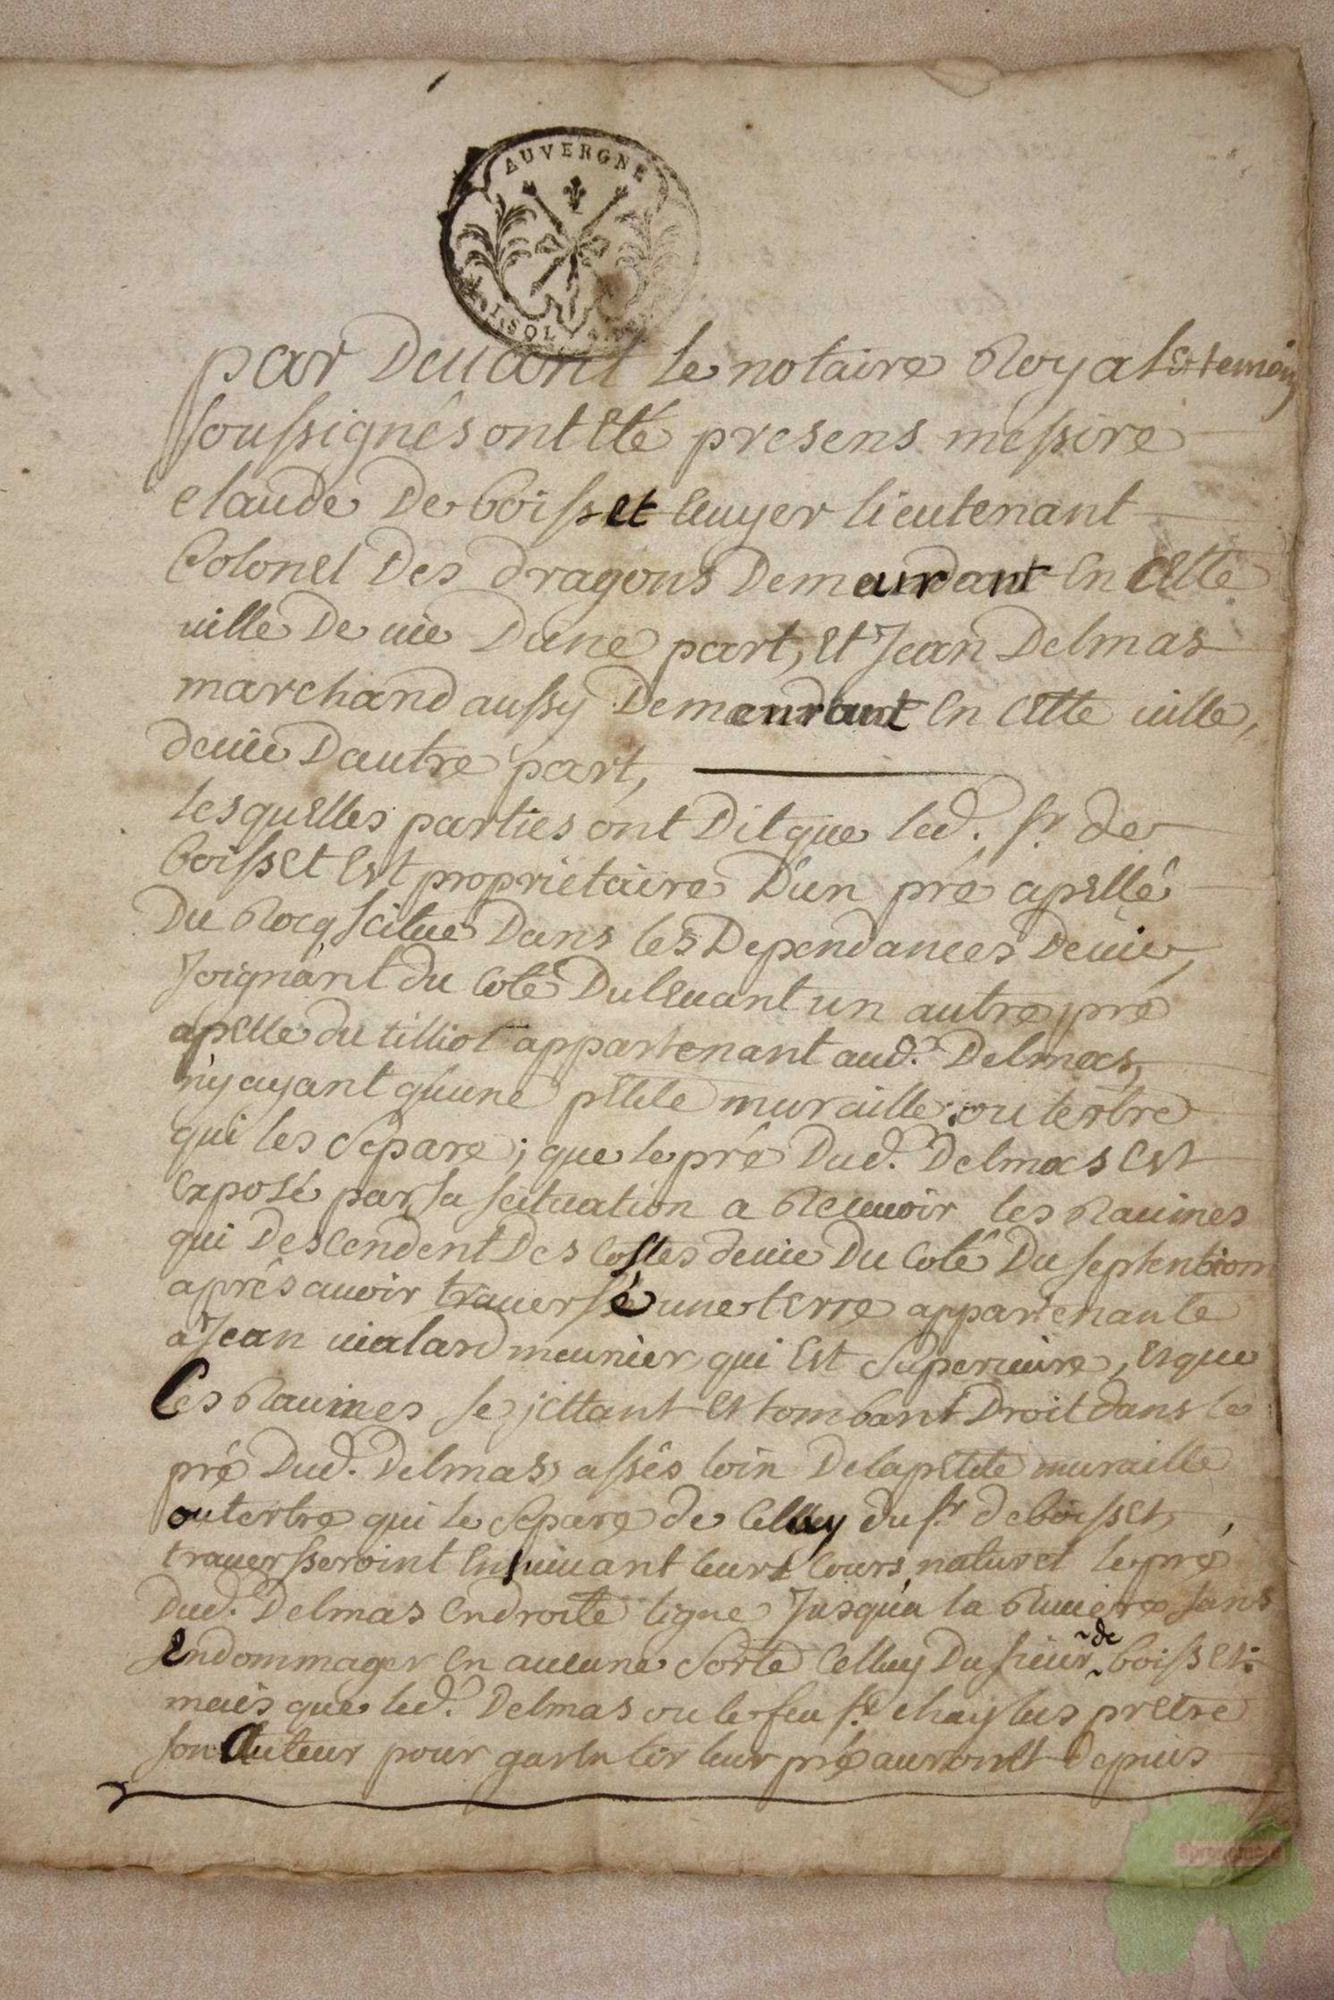 AUVERGNE
SOL
par Devant le notaire Royal et temoins
soussignés ont Eté presens messire
claude De boisset Ecuyer lieutenant
Colonel Des dragons Demeurdant En cette
ville De vic Dune part, et Jean Delmas
marchand aussy Demeurdant En cette ville,
de vic Dautre part,
lesquelles parties ont Dit que led. sr. de
boisset Est proprietaire D'un pré apellé
Du Rocq scitue Dans les Dependances De vic,
Joignant du Coté Du levant un autre pré
apelle du tilliol appartenant aud. Delmas,
n'y ayant qu'une petite muraille ou tertre
qui les Separe; que le pré Dud. Delmas Est
Exposé par sa scituation a Recevoir les Ravines
qui Descendent Des Costes de vic Du Coté Du septention
après avoir traversé une terre appartenante
a Jean vialard meunier, qui Est Superieure, et que
Ces Ravines se jettant et tombant Droit dans le
pré Dud. Delmas assés loin De la petite muraille
ou tertre qui le Separe de Celluy du sr de boisset,
traversseroint En suivant leurs Cours naturel le pré
Dud. Delmas En droite ligne Jusqu'a la Riviere sans
Endommager En aucune Sorte Celluy Du sieur de boisset:
mais que led. Delmas ou le feu sr. chaylus pretre
son Auteur pour garentir leur pré auroint Depuis